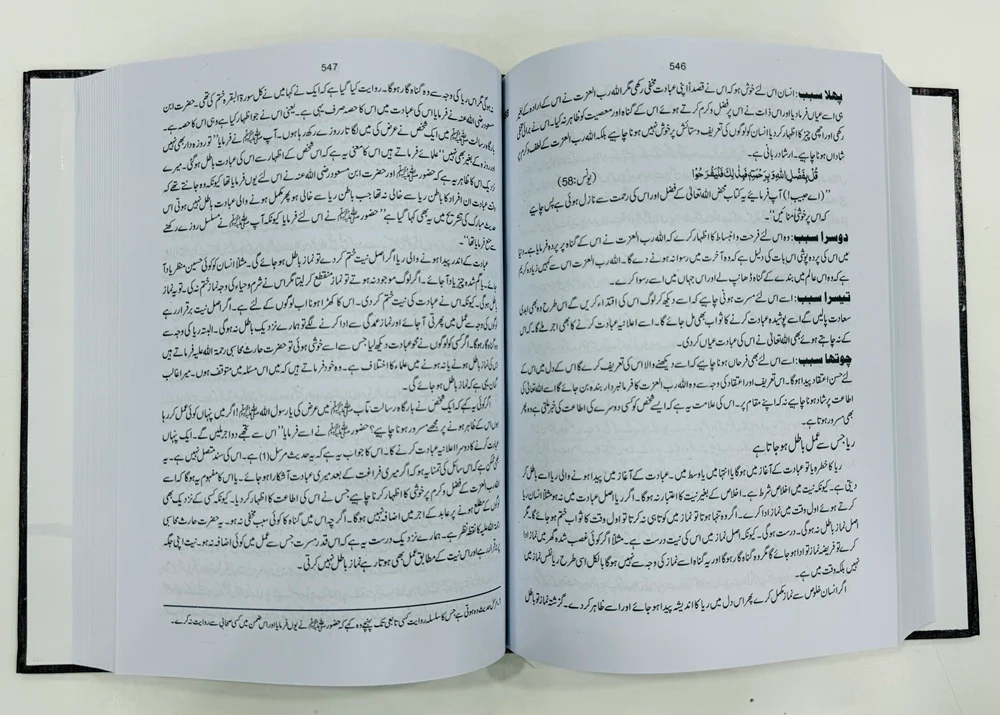 546
پہلا سبب: انسان اس لئے خوش ہو کہ اس نے قصداً اپنی عبادت مخفی رکھی مگر اللہ رب العزت نے اس کے ارادہ کے بغیر
ہی اسے عیاں فرما دیا اور اس ذات نے اس پر فضل و کرم کرتے ہوئے اس کے گناہ اور معصیت کو ظاہر نہ کیا۔ اس نے برائی مخفی
رکھی اور اچھی چیز کا اظہار کر دیا انسان کو لوگوں کی تعریف و ستائش پر خوش نہیں ہونا چاہیے بلکہ اللہ رب العزت کے لطف و کرم پر
شاداں ہونا چاہیے۔ ارشاد ربانی ہے۔
قُلْ بِفَضْلِ اللّٰهِ وَ بِرَحْمَتِهٖ فَبِذٰلِكَ فَلْيَفْرَحُوْا (یونس:58)
"(اے حبیب!) آپ فرمائیے یہ کتاب محض اللہ تعالیٰ کے فضل اور اس کی رحمت سے نازل ہوئی ہے پس چاہیے
کہ اس پر خوشی منائیں"۔
دوسرا سبب: وہ اس لئے فرحت و انبساط کا اظہار کرے کہ اللہ رب العزت نے اس کے گناہ پر پردہ فرمایا ہے۔ دنیا
میں اس کی پردہ پوشی اس بات کی دلیل ہے کہ وہ آخرت میں رسوا نہ ہونے دے گا۔ اللہ رب العزت اس سے کہیں زیادہ کریم
ہے کہ وہ اس عالم میں بندے کے گناہ ڈھانپ لے اور اس جہاں میں اسے رسوا کرے۔
تیسرا سبب: اسے اس لئے مسرت ہونی چاہیے کہ اسے دیکھ کر لوگ اس کی اقتداء کریں گے اس طرح وہ بھی ابدی
سعادت پالیں گے اسے پوشیدہ عبادت کرنے کا ثواب بھی مل جائے گا۔ اسے اعلانیہ عبادت کرنے کا بھی اجر ملے گا کہ اس
کے نہ چاہتے ہوئے بھی اللہ تعالیٰ نے اس کی عبادت عیاں کر دی۔
چوتھا سبب: اسے اس لئے بھی فرحاں ہونا چاہیے کہ اسے دیکھنے والا اس کی تعریف کرے گا اس کے دل میں اس کے
لئے حسن اعتقاد پیدا ہوگا۔ اس تعریف اور اعتقاد کی وجہ سے وہ اللہ رب العزت کا فرمانبردار بندہ بن جائے گا اسے اللہ تعالیٰ کی
اطاعت پر شاد ہونا چاہیے نہ کہ اپنے مقام پر۔ اس کی علامت یہ ہے کہ ایسے شخص کو کسی دوسرے کی اطاعت کی خبر ملتی ہے وہ پھر
بھی مسرور ہوتا ہے۔
ریا جس سے عمل باطل ہو جاتا ہے
ریا کا خطرہ یا تو عبادت کے آغاز میں ہوگا یا انتہا میں یا وسط میں۔ عبادت کے آغاز میں پیدا ہونے والی ریا اسے باطل کر
دیتی ہے۔ کیونکہ نیت میں اخلاص شرط ہے۔ اخلاص کے بغیر نیت کا اعتبار نہ ہوگا۔ اگر ریا اصل عبادت میں نہ ہو مثلاً انسان ریا
کرتے ہوئے اول وقت میں نماز ادا کرے۔ اگر وہ تنہا ہوتا تو نماز میں کوتاہی نہ کرتا تو اول وقت کا ثواب ختم ہو جائے گا۔ مگر
اصل نماز باطل نہ ہوگی۔ درست ہوگی۔ کیونکہ اصل نماز میں اس کی نیت درست ہے۔ مثلاً اگر کوئی غصب شدہ گھر میں نماز ادا
کرے تو فریضہ نماز تو ادا ہو جائے گا مگر وہ گناہ گار ہوگا اور یہ گناہ اسے نماز کی وجہ سے نہیں ہوگا بالکل اسی طرح ریا نفس نماز میں
نہیں بلکہ وقت میں ہے۔
اگر انسان خلوص سے نماز مکمل کرے پھر اس دل میں ریا کا اندیشہ پیدا ہو جائے اور اسے ظاہر کر دے۔ گزشتہ نماز تو باطل
547
نہ ہوگی مگر اس ریا کی وجہ سے وہ گناہ گار ہوگا۔ روایت کیا گیا ہے کہ ایک نے کہا میں نے کل سورۃ البقرہ ختم کی تھی۔ حضرت ابن
مسعود رضی اللہ عنہ نے فرمایا اس کی عبادت میں اس کا حصہ صرف یہی ہے۔ یعنی اس نے جو اظہار کیا ہے وہی اس کا حصہ ہے۔
بارگاہ رسالت میں ﷺ ایک شخص نے عرض کی میں لگاتار روزے رکھ رہا ہوں۔ آپ ﷺ نے فرمایا "تو روزہ دار بھی نہیں
اور روزہ کے بغیر بھی نہیں" علمائے فرماتے ہیں اس کا معنی یہ ہے کہ اس شخص کے اظہار سے اس کی عبادت باطل ہو گئی۔ میرے
نزدیک اس کا ظاہر یہ ہے کہ حضور ﷺ اور حضرت ابن مسعود رضی اللہ عنہ نے اس لئے یوں فرمایا تھا کیونکہ وہ جانتے تھے کہ
وقت عبادت ان افراد کا باطن ریا سے خالی نہ تھا جب باطن ریا سے خالی ہو پھر مکمل ہونے والی عبادت باطل نہیں ہوتی اس
حدیث مبارک کی تشریح میں یہ بھی کہا گیا ہے "حضور ﷺ نے اس لئے فرمایا کیونکہ آپ ﷺ نے مسلسل روزے رکھنے
سے منع فرمایا تھا"۔
عبادت کے اندر پیدا ہونے والی ریا اگر اصل نیت ختم کر دے تو نماز باطل ہو جائے گی۔ مثلاً انسان کو کوئی حسین منظر یاد آ
جائے۔ یا گم شدہ چیز یاد آ جائے۔ اگر لوگ موجود نہ ہوتے تو نماز منقطع کر لیتا مگر اس نے شرم و حیاء کی وجہ نماز ختم نہ کی۔ تو یہ نماز
باطل ہوگی۔ کیونکہ اس نے عبادت کی نیت ختم کر دی۔ اس کا کھڑا ہونا اب لوگوں کے لئے ہے۔ اگر اصل نیت برقرار رہے
لوگوں کی وجہ سے عمل میں پھرتی آ جائے اور نماز عمدگی سے ادا کرنے لگے تو ہمارے نزدیک باطل نہ ہوگی۔ البتہ ریا کی وجہ سے
گناہ گار ہوگا۔ اگر کسی کو لوگوں نے محو عبادت دیکھ لیا جس سے اسے خوشی ہوئی تو حضرت حارث محاسبی رحمۃ اللہ علیہ فرماتے ہیں
اس کی نماز باطل ہونے یا نہ ہونے میں علماء کا اختلاف ہے۔ وہ خود فرماتے ہیں کہ میں اس مسئلہ میں متوقف ہوں۔ میرا غالب
گمان یہی ہے کہ نماز باطل ہو جائے گی۔
اگر کوئی یہ کہے کہ ایک شخص نے بارگاہ رسالت مآب ﷺ میں عرض کی یا رسول اللہ ﷺ! اگر میں پنہاں کوئی عمل کر رہا
ہوں اس کے ظاہر ہونے پر مجھے مسرور ہونا چاہیے؟ حضور ﷺ نے اسے فرمایا "اس سے تجھے دو اجر ملیں گے۔ ایک پنہاں
عبادت کرنے کا دوسرا اعلانیہ عبادت کرنے کا۔ اس کا جواب یہ ہے کہ یہ حدیث مرسل (1) ہے۔ اس کی سند متصل نہیں ہے۔ یہ
بھی ممکن ہے کہ اس سائل کی تمنا یہ ہو کہ اگر میری فراغت کے بعد میری عبادت آشکارا ہو جائے۔ یا اس کا مفہوم یہ ہوگا کہ اسے
اللہ رب العزت کے فضل و کرم پر خوشی کا اظہار کرنا چاہیے جس نے اس کی اطاعت کا اظہار کر دیا۔ کیونکہ کسی کے نزدیک بھی
لوگوں کے مطلع ہونے پر عابد کے اجر میں اضافہ نہیں ہوگا۔ اگرچہ اس میں گناہ کا کوئی سبب مخفی نہ ہو۔ یہ حضرت حارث محاسبی
رحمۃ اللہ علیہ کا نقطہ نظر ہے۔ ہمارے نزدیک درست یہ ہے کہ اس قدر مسرت جس سے عمل میں کوئی اضافہ نہ ہو۔ نیت اپنی جگہ
برقرار رہے اور اس نیت کے مطابق عمل بھی ہوتا رہے نماز باطل نہیں کرتی۔
1۔ مرسل حدیث وہ ہوتی ہے جس کا سلسلہ روایت کسی تابعی تک پہنچے وہ کہے کہ حضور ﷺ نے یوں فرمایا اور اس ضمن میں کسی صحابی سے روایت نہ کرے۔